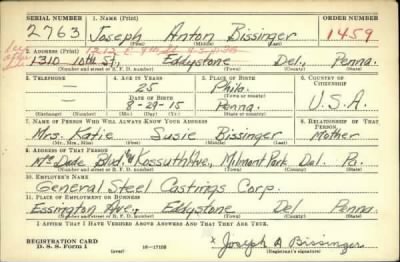 SERIAL NUMBER 1. NAME (Print) ORDER NUMBER
2763 Joseph Anton Bissinger 1459
(First) (Middle) (Last)
1212 E 9th St
2. ADDRESS (Print)
1310 10th St., Eddystone Del., Penna.
(Number and street or R. F. D. number) (Town) (County) (State)
3. TELEPHONE 4. AGE IN YEARS 5. PLACE OF BIRTH 6. COUNTRY OF CITIZENSHIP
— 25 Phila.
DATE OF BIRTH (Town or county)
— 8-29-15 Penna. U.S.A.
(Exchange) (Number) (Mo.) (Day) (Yr.) (State or country)
7. NAME OF PERSON WHO WILL ALWAYS KNOW YOUR ADDRESS 8. RELATIONSHIP OF THAT PERSON
Mrs. Katie Susie Bissinger Mother
(Mr., Mrs., Miss) (First) (Middle) (Last)
9. ADDRESS OF THAT PERSON
Mc Dade Blvd. & Kossuth Ave., Milmont Park Del. Pa.
(Number and street or R. F. D. number) (Town) (County) (State)
10. EMPLOYER'S NAME
General Steel Castings Corp.
11. PLACE OF EMPLOYMENT OR BUSINESS
Essington Ave., Eddystone Del Penna
(Number and street or R. F. D. number) (Town) (County) (State)
I AFFIRM THAT I HAVE VERIFIED ABOVE ANSWERS AND THAT THEY ARE TRUE.
REGISTRATION CARD
D. S. S. Form 1 (over) 16—17105 x Joseph A Bissinger
(Registrant's signature)